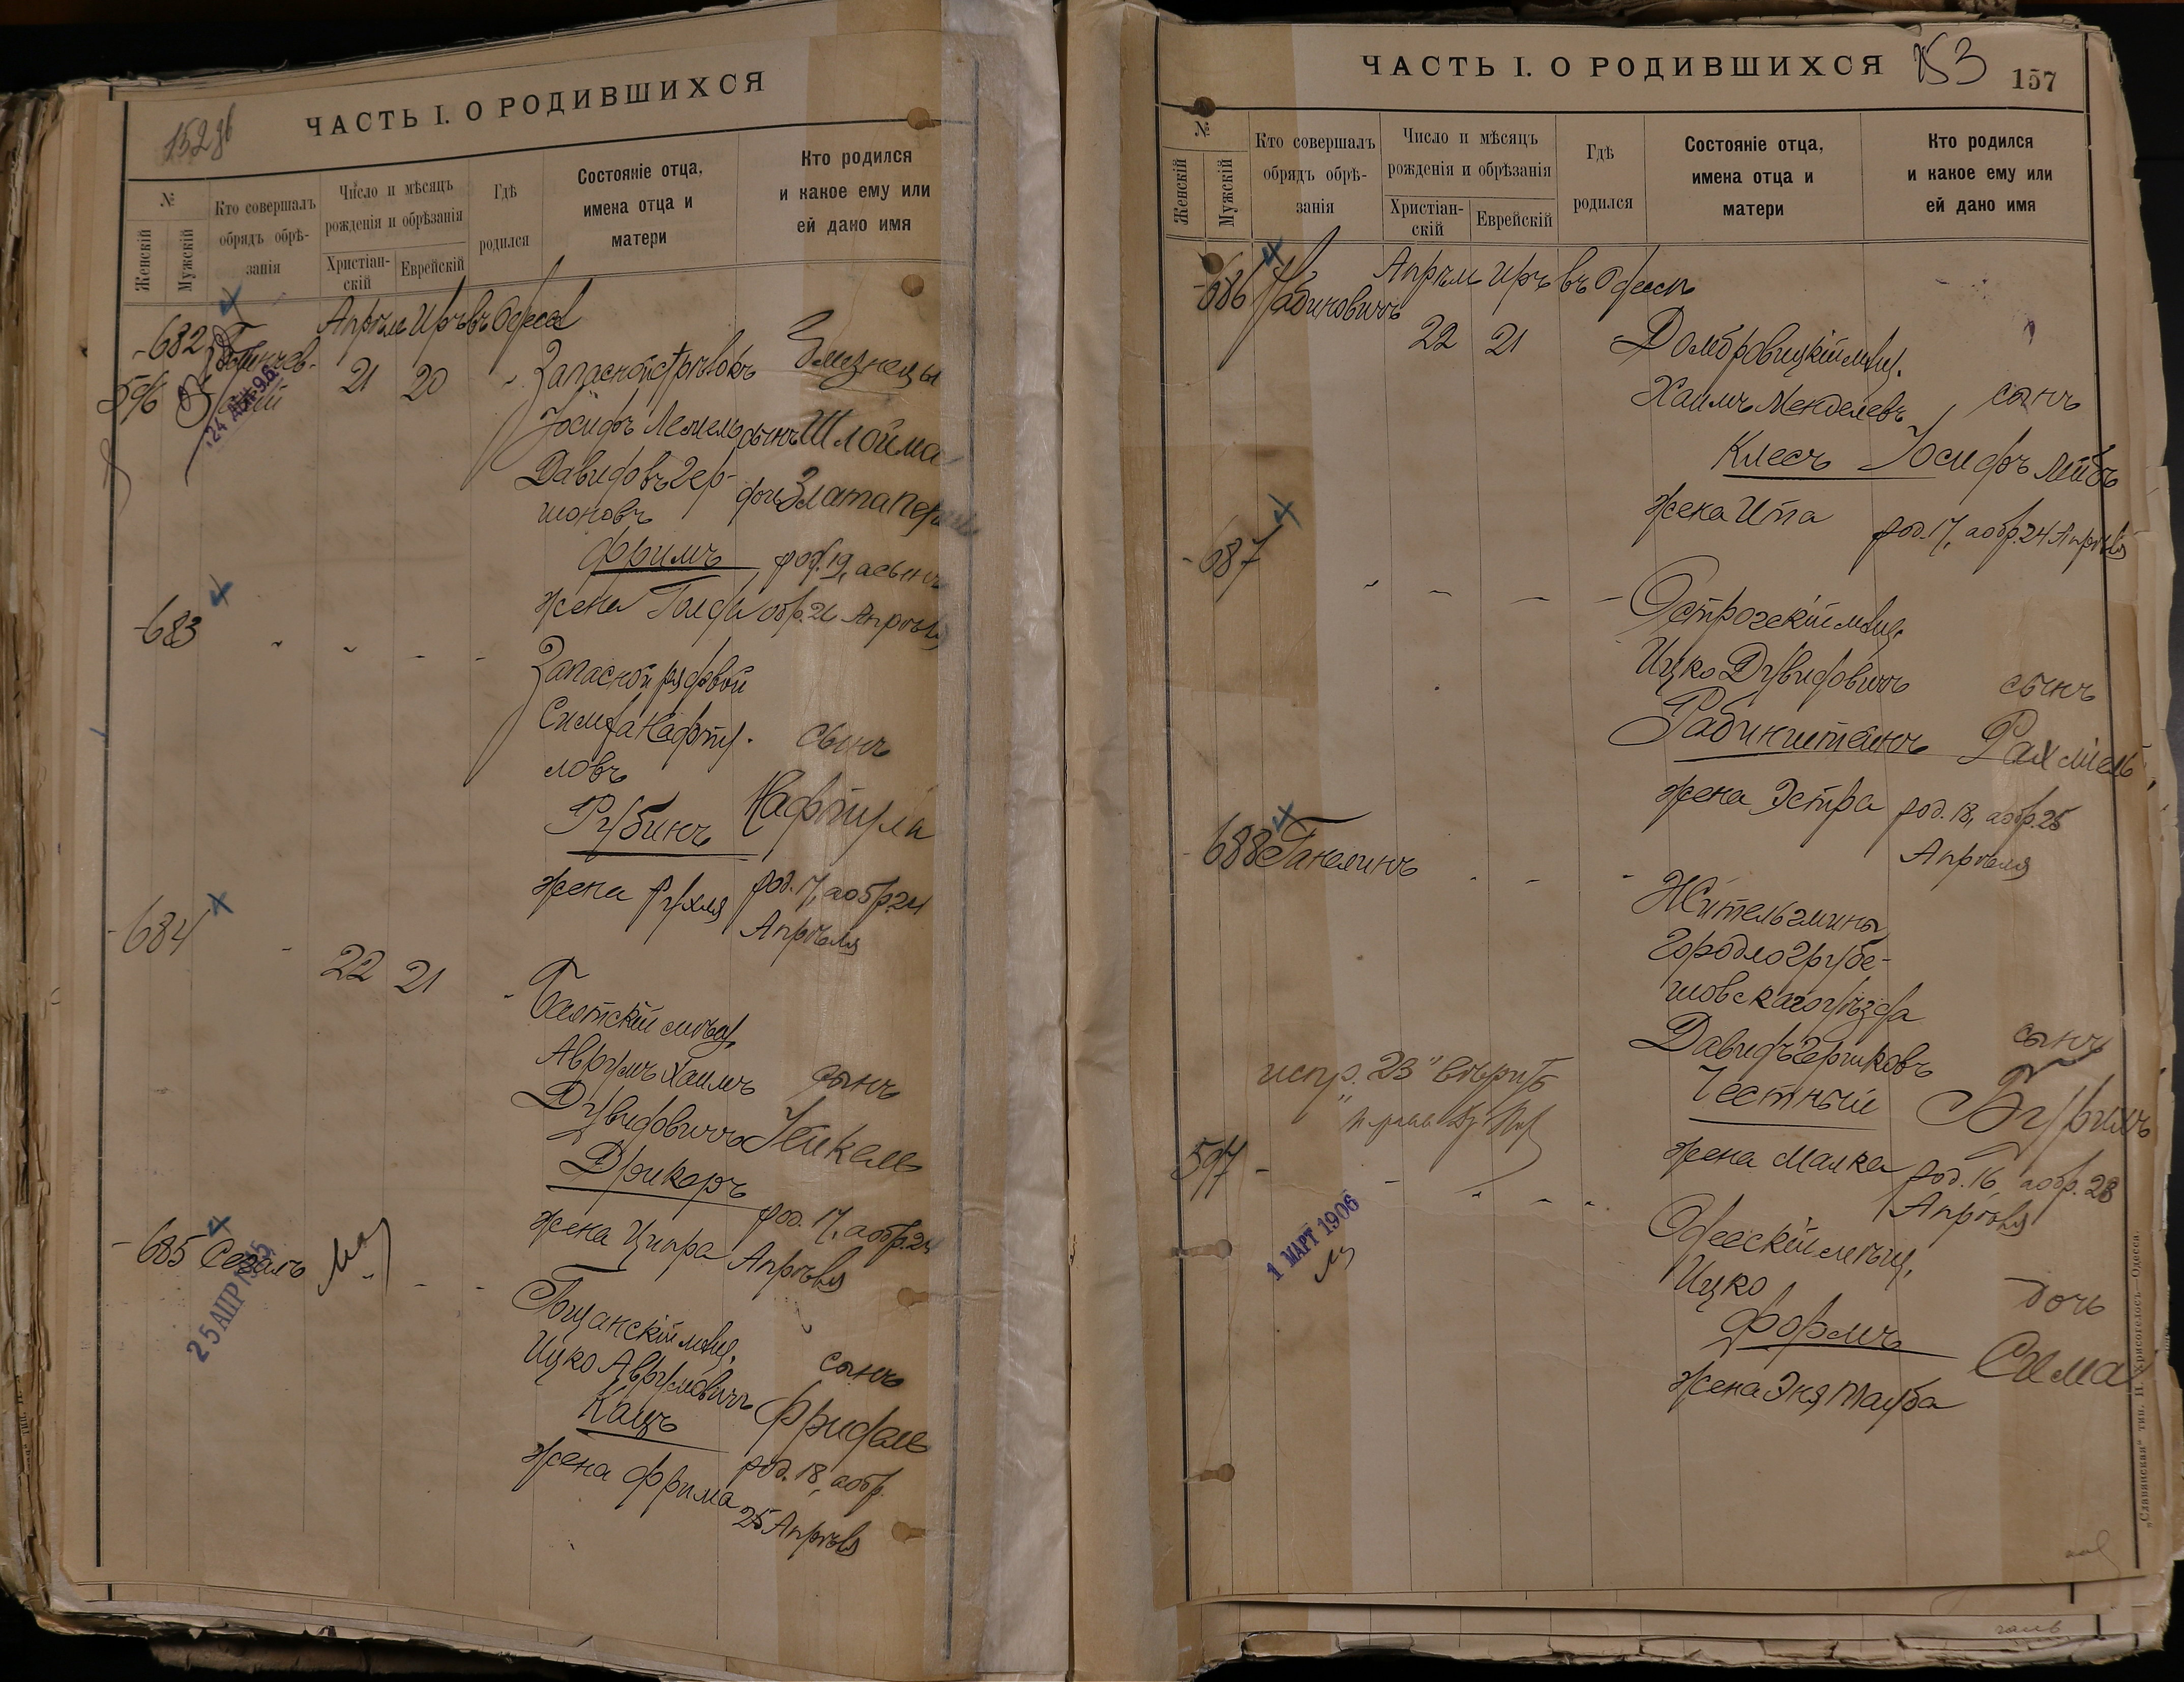 152 об
ЧАСТЬ I. О РОДИВШИХСЯ
№
Женскій
Мужскій
Кто совершалъ
обрядъ обрѣ-
занія
Число и мѣсяцъ
рожденія и обрѣзанія
Христіан-
скій
Еврейскій
Гдѣ
родился
Состояніе отца,
имена отца и
матери
Кто родился
и какое ему или
ей дано имя
682
596
Апрѣль Иръ въ Одессѣ
21 20
Запасной стрѣлокъ
Іосифъ Лемель
Давидовъ Гер-
шоновъ
Фримъ
жена Голда
Близнецы
сынъ Шлойма
дочь Злата
род. 19, а сынъ
обр. 26 Апрѣля
683
Запасной рядовой
Симха Нафту-
ловъ
Рубинъ
жена Рухля
сынъ
Нафтула
род. 17, а обр. 24
Апрѣля
684
22 21
Балтскій мѣщ.
Аврумъ Хаимъ
Дувидовичъ
Друкоръ
жена Ципра
сынъ
Янкель
род. 17, а обр. 24
Апрѣля
685 Сегалъ
25 АПР
Гощанскій мѣщ.
Ицко Аврумовичъ
Кацъ
жена Фрима
сынъ
Фридель
род. 18, а обр.
25 Апрѣля
ЧАСТЬ I. О РОДИВШИХСЯ
153
157
№
Женскій
Мужскій
Кто совершалъ
обрядъ обрѣ-
занія
Число и мѣсяцъ
рожденія и обрѣзанія
Христіан-
скій
Еврейскій
Гдѣ
родился
Состояніе отца,
имена отца и
матери
Кто родился
и какое ему или
ей дано имя
686 Рабиновичъ
Апрѣль Иръ въ Одессѣ
22 21
Домбровицкій мѣщ.
Хаимъ Менделевъ
Клесъ
жена Ита
сынъ
Іосифъ Лейбъ
род. 17, а обр. 24 Апрѣля
687
Острогскій мѣщ.
Ицко Дувидовичъ
Рабинштейнъ
жена Эстра
сынъ
Рахміель
род. 18, а обр. 25
Апрѣля
688 Ганелинъ
Житель гмины
Городло Грубе-
шовскаго уѣзда
Давидъ Гершковъ
Честный
жена Малка
сынъ
род. 16, а обр. 23
Апрѣля
испр. 23" вѣрить
597
1 МАРТ 1906
Одесскій мѣщ.
Ицко
Формъ
жена Эня Тауба
дочь
Сима
„Славянская" тип. Н. Хрисогелосъ—Одесса.